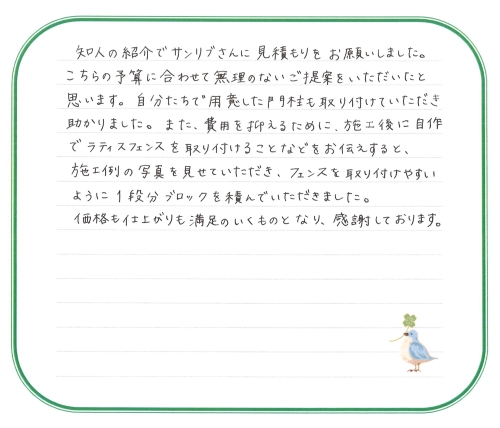 知人の紹介でサンリブさんに見積もりをお願いしました。
こちらの予算に合わせて無理のないご提案をいただいたと
思います。自分たちで用意した門柱も取り付けていただき
助かりました。また、費用を抑えるために、施工後に自作
でラティスフェンスを取り付けることなどをお伝えすると、
施工例の写真を見せていただき、フェンスを取り付けやすい
ように1段分ブロックを積んでいただきました。
価格も仕上がりも満足のいくものとなり、感謝しております。